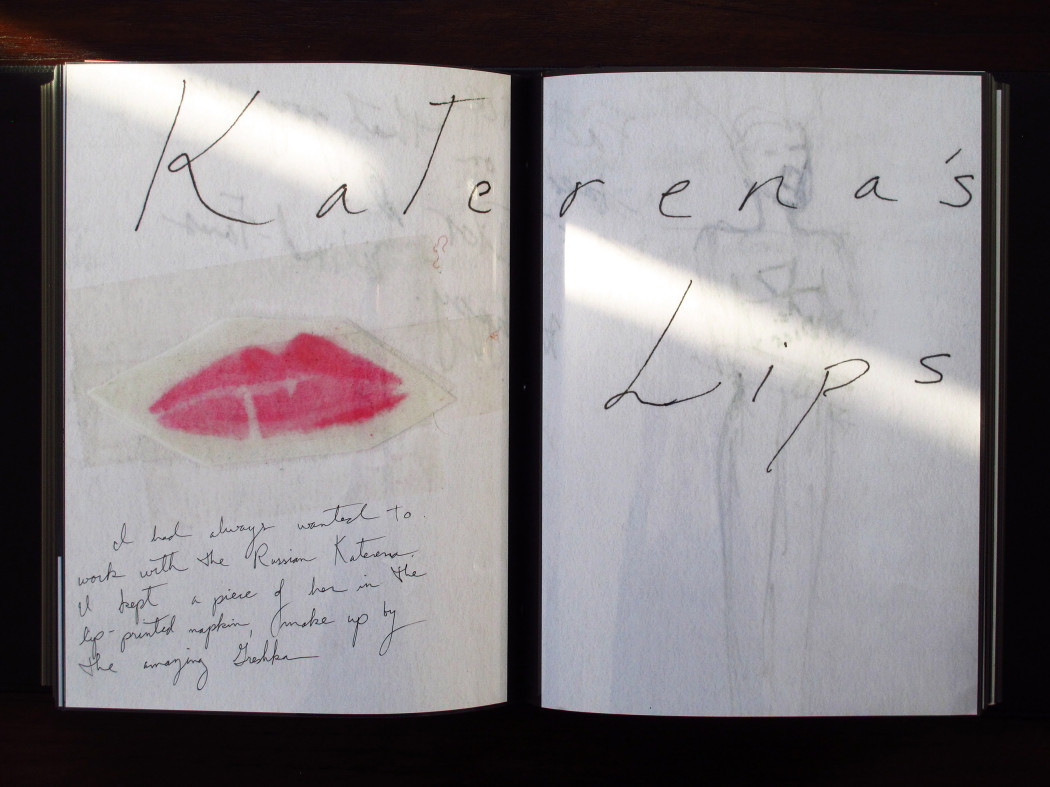 Katerena's
Lips
I had always wanted to
work with the Russian Katerena.
I kept a piece of her in the
lip-printed napkin, (make up by
the amazing Greshka